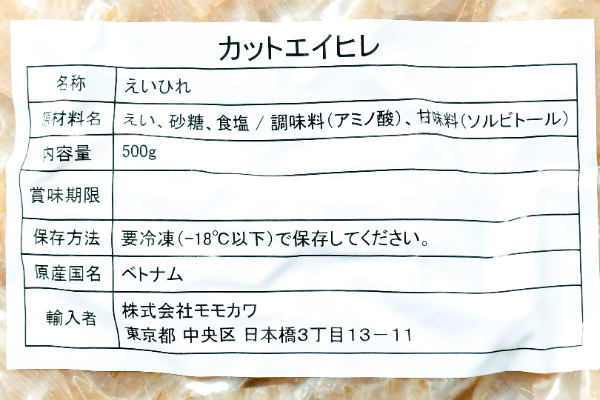 カットエイヒレ
名称 えいひれ
原材料名 えい、砂糖、食塩 / 調味料(アミノ酸)、甘味料(ソルビトール)
内容量 500g
賞味期限
保存方法 要冷凍(-18℃以下)で保存してください。
原産国名 ベトナム
輸入者 株式会社モモカワ
東京都 中央区 日本橋3丁目13－11